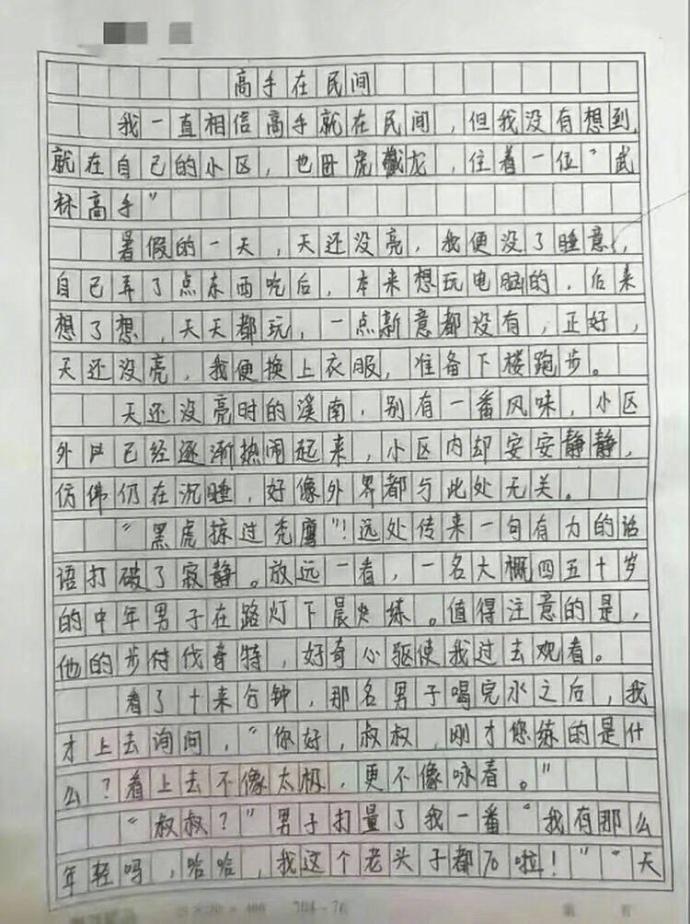 高手在民间
我一直相信高手就在民间，但我没有想到，
就在自己的小区，也卧虎藏龙，住着一位“武
林高手”
暑假的一天，天还没亮，我便没了睡意，
自己弄了点东西吃后，本来想玩电脑的，后来
想了想，天天都玩，一点新意都没有，正好，
天还没亮，我便换上衣服，准备下楼跑步。
天还没亮时的溪南，别有一番风味，小区
外已经逐渐热闹起来，小区内却安安静静，
仿佛仍在沉睡，好像外界都与此处无关。
“黑虎掠过秃鹰”！远处传来一句有力的话
语打破了寂静。放远一看，一名大概四五十岁
的中年男子在路灯下晨练。值得注意的是，
他的步伐奇特，好奇心驱使我过去观看。
看了十来分钟，那名男子喝完水之后，我
才上去询问，“你好，叔叔，刚才您练的是什
么？看上去不像太极，更不像咏春。”
“叔叔？”男子打量了我一番“我有那么
年轻吗，哈哈，我这个老头子都70啦！”“天